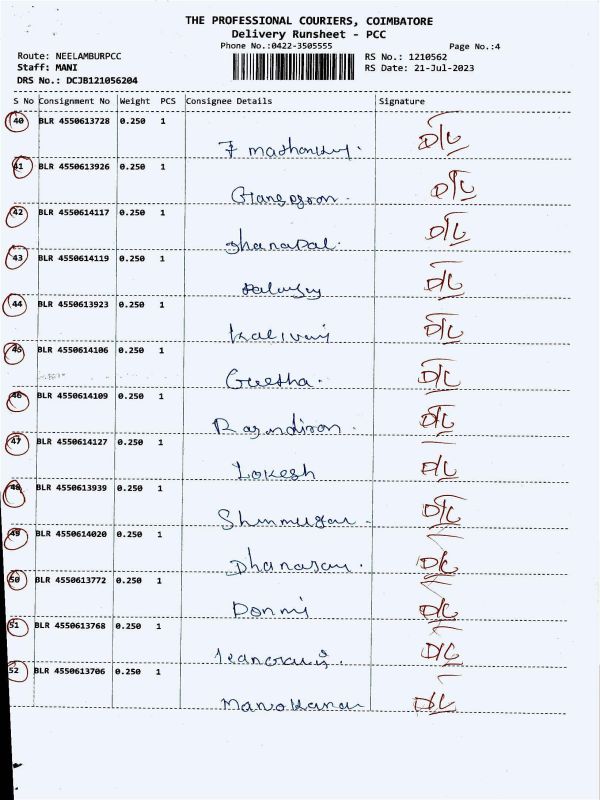 THE PROFESSIONAL COURIERS, COIMBATORE
Delivery Runsheet - PCC
Phone No.:0422-3505555
Page No.:4
Route: NEELAMBURPCC
RS No.: 1210562
Staff: MANI
RS Date: 21-Jul-2023
DRS No.: DCJB121056204
S No Consignment No Weight PCS Consignee Details Signature
40 BLR 4550613728 0.250 1
D/L
41 BLR 4550613926 0.250 1
D/L
42 BLR 4550614117 0.250 1
Dhanapal. D/L
43 BLR 4550614119 0.250 1
D/L
44 BLR 4550613923 0.250 1
D/L
45 BLR 4550614106 0.250 1
Geetha. D/L
46 BLR 4550614109 0.250 1
D/L
47 BLR 4550614127 0.250 1
Lokesh D/L
48 BLR 4550613939 0.250 1
D/L
49 BLR 4550614020 0.250 1
D/L
50 BLR 4550613772 0.250 1
D/L
51 BLR 4550613768 0.250 1
D/L
52 BLR 4550613706 0.250 1
D/L